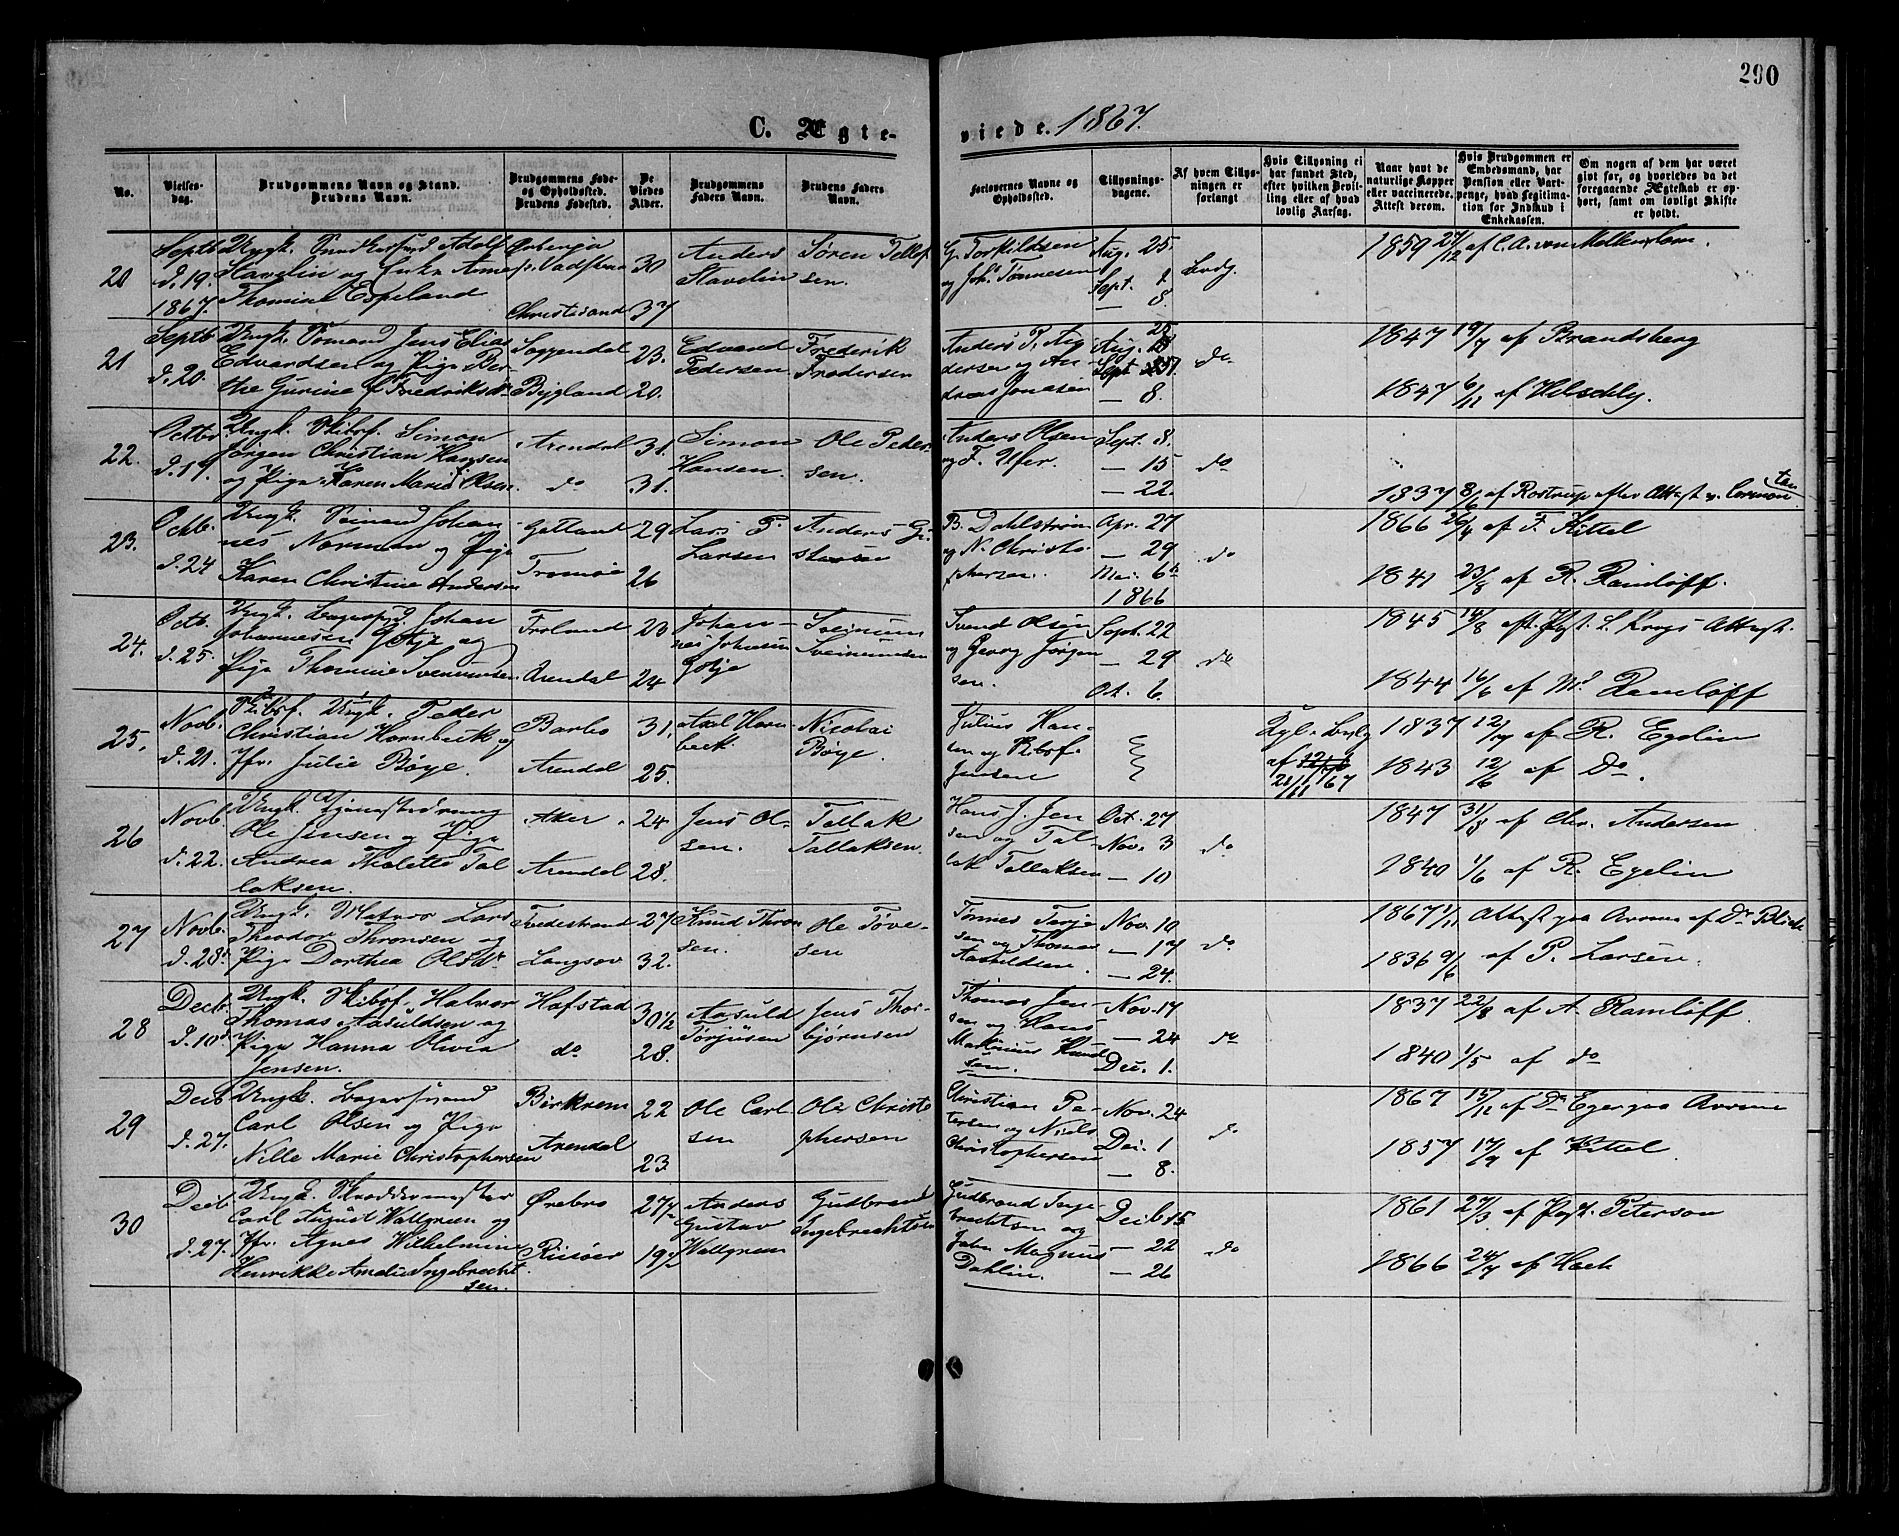 290
C. Ægteviede. 1867.
No.
Vielses-
dag.
Brudgommens Navn og Stand.
Brudens Navn.
Brudgommens Føde-
og Opholdssted.
Brudens Fødested.
De
Viedes
Alder.
Brudgommens
Faders Navn.
Brudens Faders
Navn.
Forlovernes Navne og
Opholdssted.
Tillysnings-
dagene.
Af hvem Tillys-
ningen er
forlangt
Hvis Tillysning ei
har fundet Sted,
efter hvilken Bevil-
ling eller af hvad
lovlig Aarsag.
Naar havt de
naturlige Kopper
eller vaccinerede.
Attest derom.
Hvis Brudgommen er
Embedsmand, har
Pension eller Vart-
penge, hvad Legitima-
tion for Indskud i
Enkekassen.
Om nogen af dem har været
gift før, og hvorledes da det
foregaaende Ægteskab er op-
hørt, samt om lovligt Skifte
er holdt.
20
Septb
d. 19.
1867.
Ungk. Adolf
Slavelin og Enke Anne
Thomine Espeland
Vadstena
Christisand
30
37
Anders
Slavelin
Søren Tellef
sen.
G. Torkildsen
og Johs Tønnesen
Aug. 25
Sept. 1
— 8.
Brdg.
1859 27/12 af C. A. von
21
Septb
d. 20.
Ungk. Sømand Jens Elias
Edvardsen og Pige Ber-
the Gurine Fredriksdr
Soggendal
Bygland
23.
20.
Edvard
Pedersen
Frederik
Frodersen
Anders P. An
dersen og An-
dreas Jonasen
Aug. 25
Sept. 1
— 8.
do
1847 19/7 af Brandsberg
1847 6/11 af Helschly.
22.
Octbr
d. 19.
Ungk. Skibsf. Simon
Jørgen Christian Hansen
og Pige Karen Marie Olsen.
Arendal
do
31.
31.
Simon
Hansen.
Ole Peder-
sen.
Anders Olsen
og F. Ufer.
Sept. 8.
— 15
— 22.
do
1837 8/6 af Rostrup efter Attest v. Cormontan
23.
Octb.
d. 24
Ungk. Sømand Johan
nes Norman og Pige
Karen Christine Andersen
Gotland
Tromøe
29
26
Lars P.
Larsen
Anders Gu-
stavsen
B. Dahlstrøm
og N. Christo-
phersen.
Apr. 27
— 29
Mai. 6te
1866
do
1866 26/4 af F. Kittel
1841 23/8 af R. Ramløff.
24.
Octb.
d. 25.
Ungk. Johan
Johannessen Gotje og
Pige Thomine Svenumsen
Froland
Arendal
23
24
Johan-
nes Johnsen
Gotje
Sveinum
Sveinumsen
Svend Olsen
og Georg Jørgen
sen.
Sept. 22
— 29
Oct. 6
do
1845 14/8 eft. Pgst. L. Krogs Attest.
1844 16/6 af Ramløff
25.
Novb.
d. 21.
Skibsf. Ungk. Peder
Christian Hornbeck og
Jfr. Julie Bøye.
Barbo
Arendal
31.
25.
Axel Horn
beck.
Nicolai
Bøye.
Julius Han-
sen og Skibsf.
Jensen
Kgl. Bevlg
af
21/11 67
1837 12/7 af R. Egelin
1843 12/6 af Do.
26
Novb
d. 22.
Ungk. Tjenestedreng
Ole Jensen og Pige
Andrea Thalette Tal
laksen.
Aker
Arendal
24
28.
Jens Ol-
sen.
Tallak
Tallaksen.
Hans J. Jen
sen og Tal-
lak Tallaksen
Oct. 27
Nov. 3
— 10
do
1847 31/8 af Chr. Andersen
1840 1/6 af R. Egelin
27
Novb.
d. 28de
Ungk. Matros Lars
Theodor Thronsen og
Pige Dorthea Olsdr
Tvedestrand
Langsev
27
32.
Knud Thron
sen.
Ole Tove-
sen
Tønnes Terje
sen og Thomas
Aasuldsen.
Nov. 10
— 17
— 24.
do
1867 1/11 Attest paa Arrene af Dr Blich
1836 9/6 af P. Larsen.
28
Decb.
d. 10de
Ungk. Skibsf. Halvor
Thomas Aasuldsen og
Pige Hanna Olivia
Jensen.
Hafstad
do
30 1/2
28.
Aasuld
Torjusen
Jens Thor-
bjørnsen
Thomas Jen-
sen og Hans
Martinius Knud
sen.
Nov. 17
— 24
Dec. 1.
do
1837 22/8 af A. Ramløff.
1840 1/5 af do
29
Decb
d. 27.
Ungk. Logerførend
Carl Olsen og Pige
Nille Marie Christophersen
Birkrem
Arendal
22
23.
Ole Carl
sen
Ole Christo
phersen
Christian Pe-
tersen og Niels
Christophersen
Nov. 24
Dec. 1
— 8.
do
1867 15/12 af Dr Eger paa Arrene
1857 17/9 af Kittel
30
Decb
d. 27.
Ungk. Skræddermester
Carl August Wallgreen og
Jfr. Agnes Wilhelmine
Henrikke Amalie Ingebrecht
sen.
Ørebro
Risøer
27 1/2
19 1/2
Anders
Gustav
Wallgreen
Gudbrand
Ingebrechtsen
Gudbrand Inge-
brechtsen og
John Magnus
Dahlin.
Decb. 15
— 22
— 26
do
1861 27/3 af Pgst. Peterson
1866 24/7 af Hoch